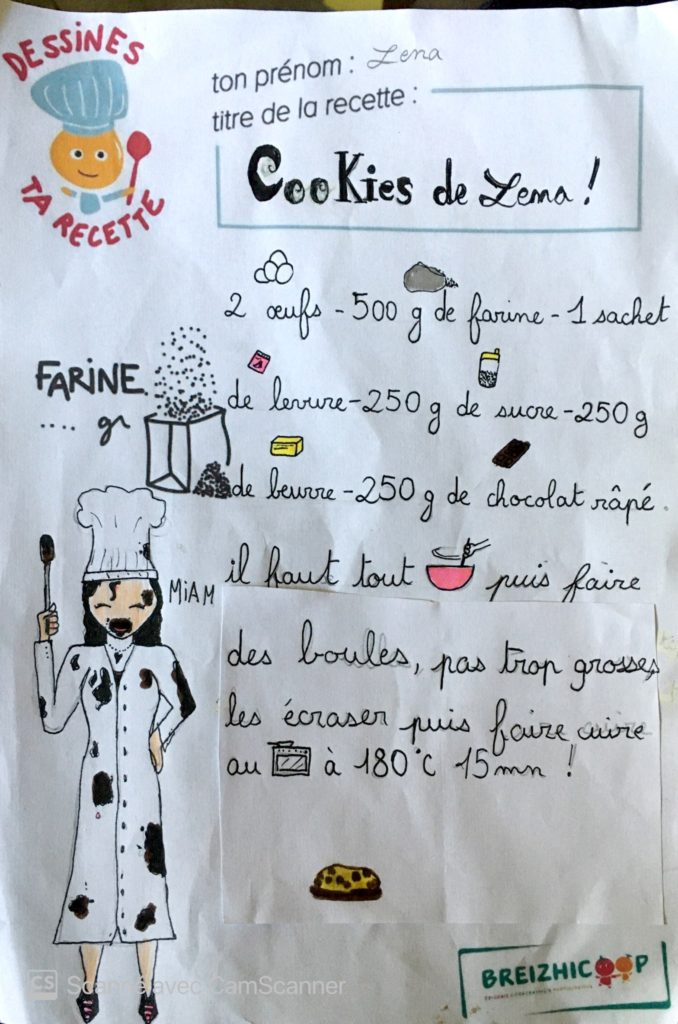 DESSINES
TA RECETTE
ton prénom : Lena
titre de la recette :
Cookies de Lena !
2 œufs - 500 g de farine - 1 sachet
FARINE
.... gr
de levure - 250 g de sucre - 250 g
de beurre - 250 g de chocolat râpé.
MIAM
il haut tout puis faire
des boules, pas trop grosses,
les écraser puis faire cuire
au à 180°C 15mn !
BREIZHICOOP
CS Scanné avec CamScanner